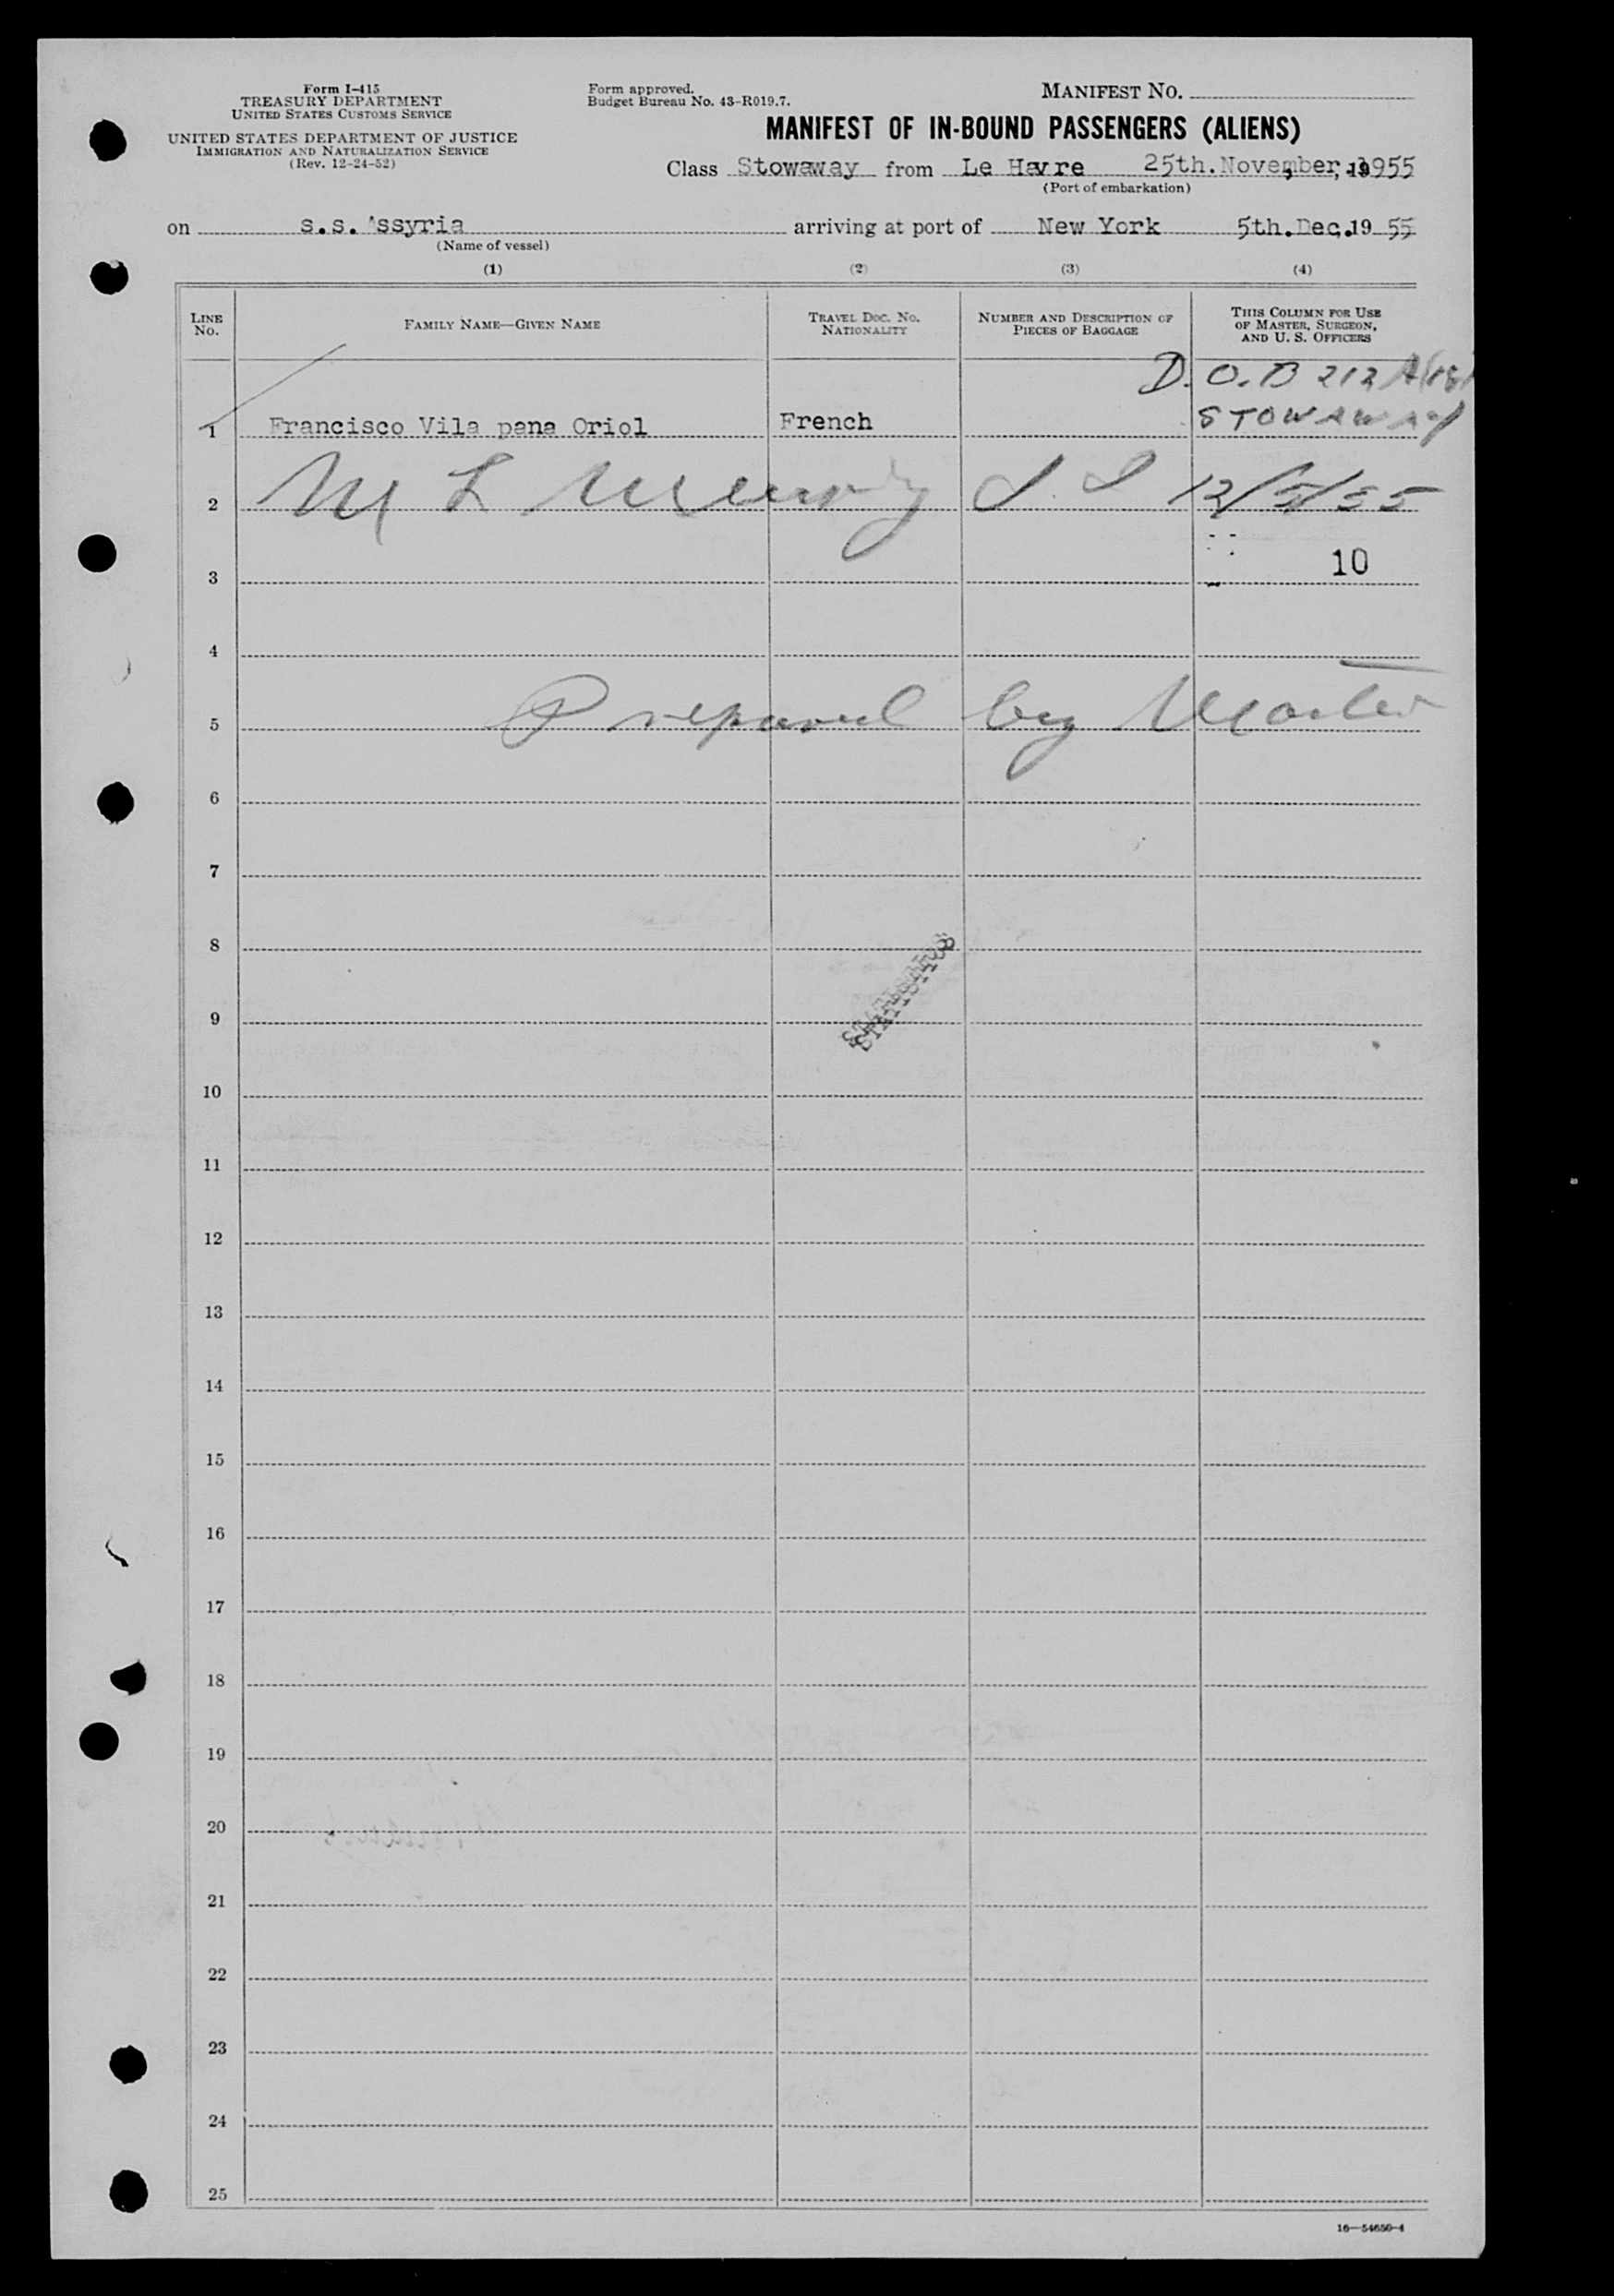 Form I-415
TREASURY DEPARTMENT
UNITED STATES CUSTOMS SERVICE
UNITED STATES DEPARTMENT OF JUSTICE
IMMIGRATION AND NATURALIZATION SERVICE
(Rev. 12-24-52)
Form approved.
Budget Bureau No. 43-R019.7.
MANIFEST NO.
MANIFEST OF IN-BOUND PASSENGERS (ALIENS)
Class Stowaway from Le Havre 25th. November, 1955
(Port of embarkation)
on s.s. Assyria arriving at port of New York 5th. Dec. 19 55
(Name of vessel)
(1) (2) (3) (4)
LINE NO.
FAMILY NAME—GIVEN NAME
TRAVEL DOC. NO. NATIONALITY
NUMBER AND DESCRIPTION OF PIECES OF BAGGAGE
THIS COLUMN FOR USE OF MASTER, SURGEON, AND U. S. OFFICERS
D. O. B 212 A(18)
1 Francisco Vila pana Oriol French STOWAWAY
2 M L 12/5/55
3 10
4
5 Prepared by Master
6
7
8
STATISTICS
9
10
11
12
13
14
15
16
17
18
19
20
21
22
23
24
25
16—54650-4